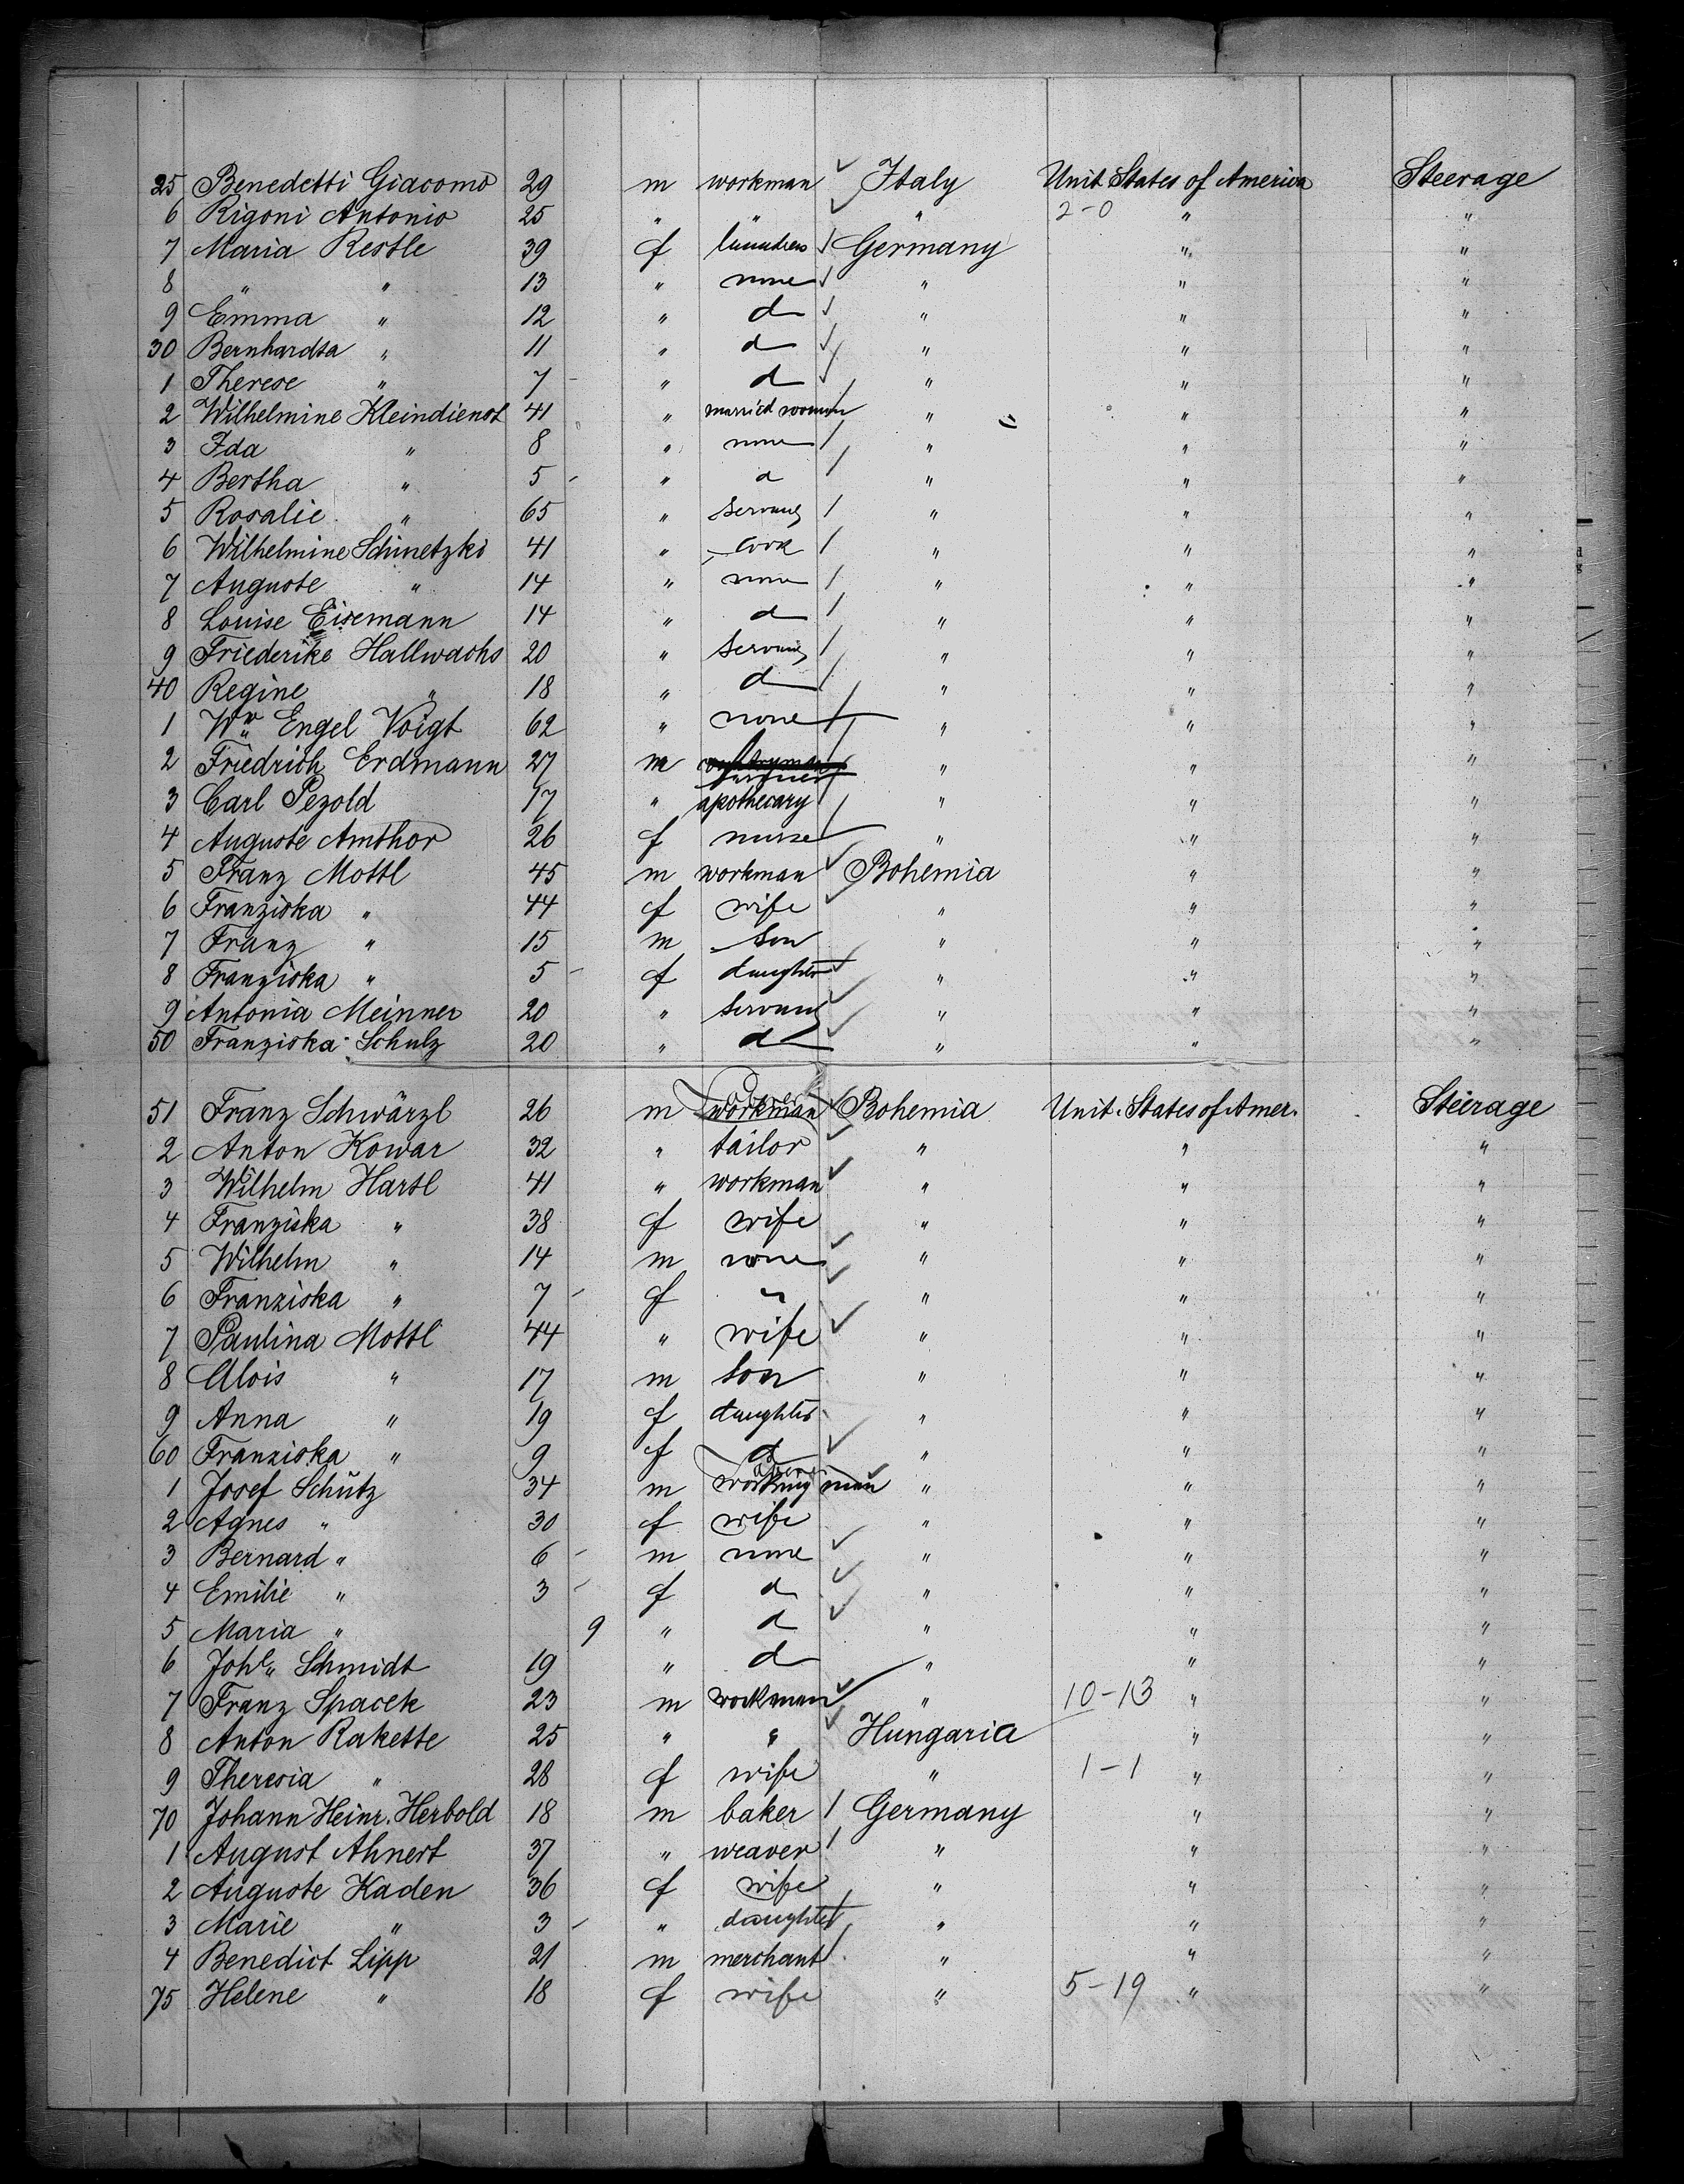 25 Benedetti Giacomo 29 m workman Italy Unit. States of America Steerage
6 Rigoni Antonio 25 " " " 2-0 " "
7 Maria Restle 39 f laundress Germany " "
8 " " 13 " none " " "
9 Emma " 12 " d " " "
30 Bernhardta " 11 " d " " "
1 Therese " 7 - " d " " "
2 Wilhelmine Kleindienst 41 " married woman " " "
3 Ida " 8 " none " " "
4 Bertha " 5 - " d " " "
5 Rosalie " 65 " servant " " "
6 Wilhelmine Schinetzki 41 " cook " " "
7 Auguste " 14 " none " " "
8 Louise Eisemann 14 " d " " "
9 Friederike Hallwachs 20 " servant " " "
40 Regine " 18 " d " " "
1 Ww. Engel Voigt 62 " none " " "
2 Friedrich Erdmann 27 m countryman " " "
3 Carl Pezold 17 " apothecary " " "
4 Auguste Amthor 26 f nurse " " "
5 Franz Mottl 45 m workman Bohemia " "
6 Franziska " 44 f wife " " "
7 Franz " 15 m son " " "
8 Franziska " 5 - f daughter " " "
9 Antonia Meinner 20 " servant " " "
50 Franziska Schulz 20 " d " " "
51 Franz Schwärzl 26 m workman Bohemia Unit. States of Amer. Steerage
2 Anton Kowar 32 " tailor " " "
3 Wilhelm Hartl 41 " workman " " "
4 Franziska " 38 f wife " " "
5 Wilhelm " 14 m none " " "
6 Franziska " 7 - f " " " "
7 Paulina Mottl 44 " wife " " "
8 Alois " 17 m son " " "
9 Anna " 19 f daughter " " "
60 Franziska " 9 f d " " "
1 Josef Schütz 34 m working man " " "
2 Agnes " 30 f wife " " "
3 Bernard " 6 - m none " " "
4 Emilie " 3 - f d " " "
5 Maria " 9 " d " " "
6 Joh. Schmidt 19 " d " " "
7 Franz Spacek 23 m workman " 10-13 " "
8 Anton Rakette 25 " " Hungaria " "
9 Theresia " 28 f wife " 1-1 " "
70 Johann Heinr. Herbold 18 m baker Germany " "
1 August Ahnert 37 " weaver " " "
2 Auguste Kaden 36 f wife " " "
3 Marie " 3 - " daughter " " "
4 Benedict Lipp 21 m merchant " " "
75 Helene " 18 f wife " 5-19 " "